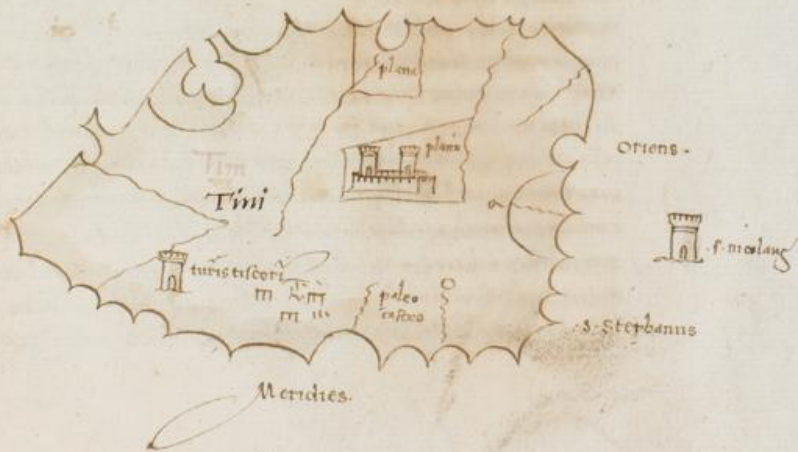 plane
planū
Oriens.
Tini
Tini
.s. nicolaus
turris tiscorū
paleo
castro
.S. Stephanus
Meridies.